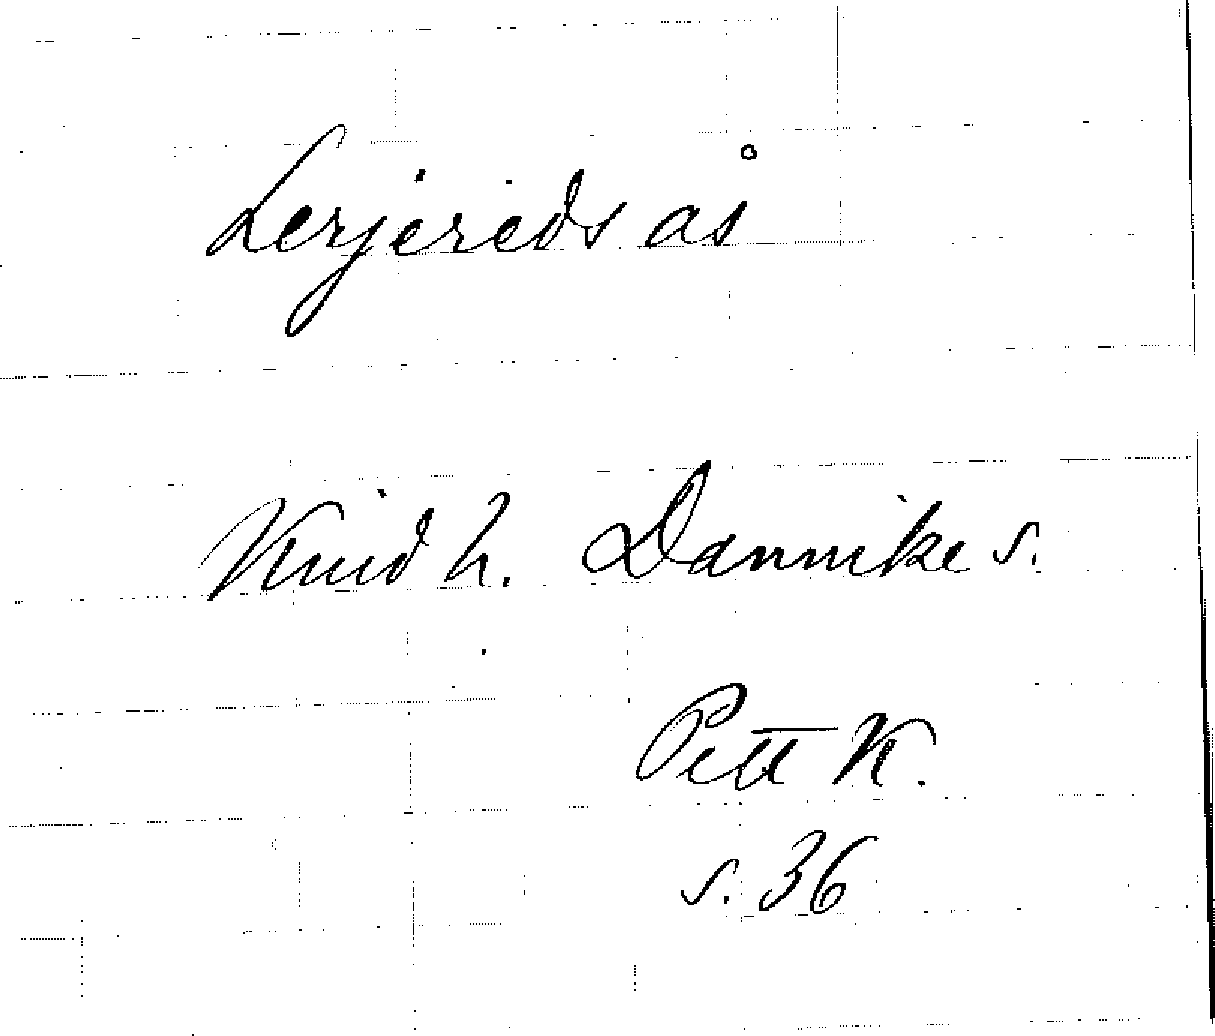 Lerjereds ås
Kind h. Dannike s.
Pett K.
s. 36